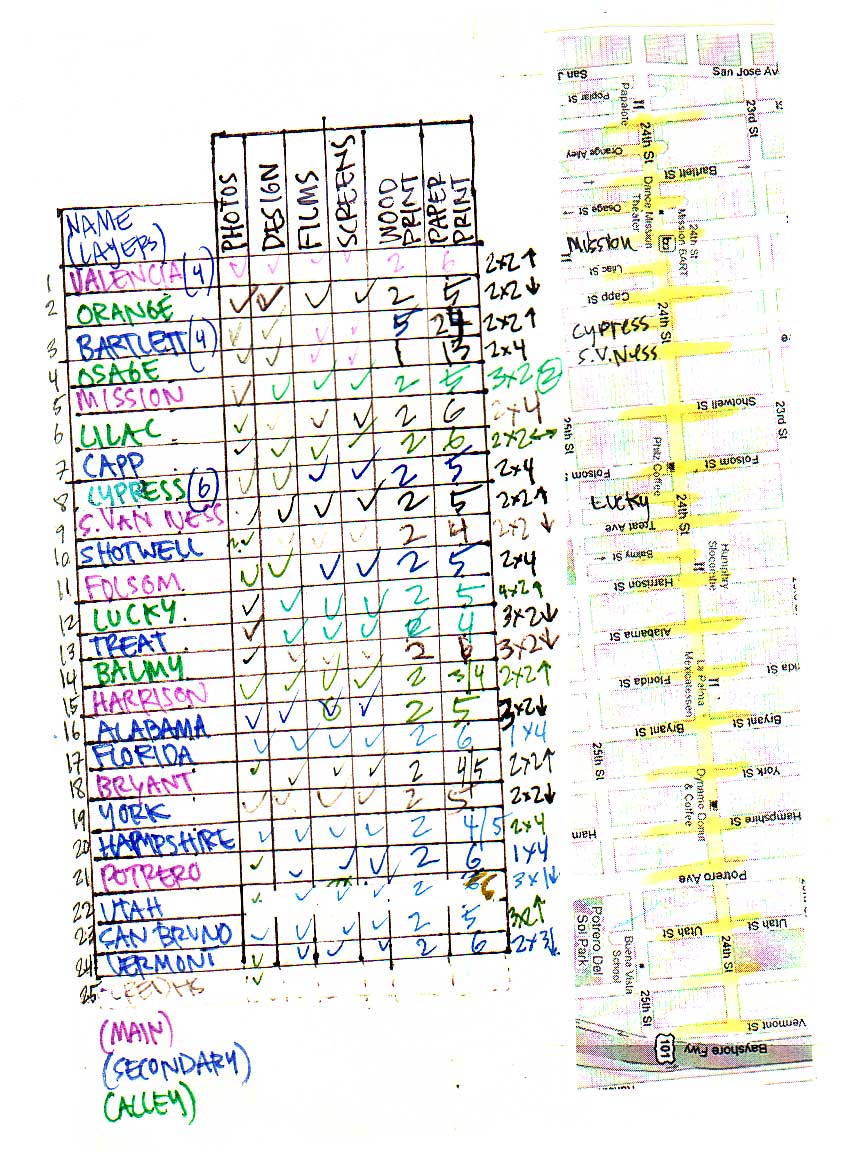 PHOTOS DESIGN FILMS SCREENS WOOD PRINT PAPER PRINT
NAME
(LAYERS)
1 VALENCIA (4) ✓ ✓ ✓ ✓ 2 6 2x2↑
2 ORANGE ✓ ✓ ✓ ✓ 2 5 2x2↓
3 BARTLETT (4) ✓ ✓ ✓ ✓ 5 24 2x2↑
4 OSAGE ✓ ✓ ✓ ✓ 1 13 2x4
5 MISSION ✓ ✓ ✓ ✓ 2 5 3x2 (2)
6 LILAC ✓ ✓ ✓ ✓ 2 6 2x4
7 CAPP ✓ ✓ ✓ ✓ 2 6 2x2↔
8 CYPRESS (6) ✓ ✓ ✓ ✓ 2 5 2x4
9 S. VAN NESS ✓ ✓ ✓ ✓ 2 5 2x2↑
10 SHOTWELL ✓ ✓ ✓ ✓ 2 4 2x2↓
11 FOLSOM ✓ ✓ ✓ ✓ 2 5 2x4
12 LUCKY ✓ ✓ ✓ ✓ 2 5 4x2↑
13 TREAT ✓ ✓ ✓ ✓ 2 4 3x2↓
14 BALMY ✓ ✓ ✓ ✓ 2 6 3x2↓
15 HARRISON ✓ ✓ ✓ ✓ 2 3/4 2x2↑
16 ALABAMA ✓ ✓ ✓ ✓ 2 5 3x2↓
17 FLORIDA ✓ ✓ ✓ ✓ 2 6 1x4
18 BRYANT ✓ ✓ ✓ ✓ 2 4/5 2x2↑
19 YORK ✓ ✓ ✓ ✓ 2 5 2x2↓
20 HAMPSHIRE ✓ ✓ ✓ ✓ 2 4/5 2x4
21 POTRERO ✓ ✓ ✓ ✓ 2 6 1x4
22 UTAH ✓ ✓ ✓ ✓ 2 6 3x1↓
23 SAN BRUNO ✓ ✓ ✓ ✓ 2 5 3x2↑
24 VERMONT ✓ ✓ ✓ ✓ 2 6 2x3↓
25 CREDITS ✓
(MAIN)
(SECONDARY)
(ALLEY)
San J
San Jose Av
Poplar St
Papalote
23rd St
24th St
Orange Alley
Bartlett St
Osage St
Dance Mission Theater
24th St Mission BART
Mission
Lilac St
Capp St
24th St
Cypress
S.V.Ness
Shotwell St
25th St
23rd St
Philz Coffee
Folsom
Folsom St
Lucky
24th St
Treat Ave
Balmy St
Humphry Slocombe
Harrison St
Alabama St
La Palma Mexicatessen
Florida St
ida St
Bryant St
Bryant St
25th St
York St
Dynamo Donut & Coffee
Ham
Hampshire St
Potrero Ave
Utah St
Utah St
Potrero Del Sol Park
Buena Vista School
24th St
25th St
Vermont St
101
Bayshore Fwy